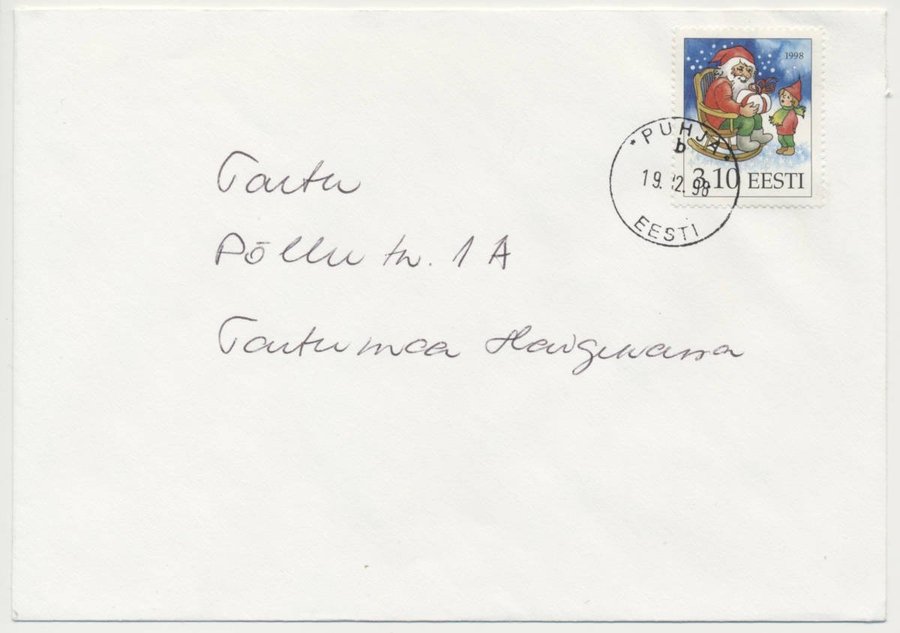 1998
3.10 EESTI
PUHJA
b
19.12.98
EESTI
Tartu
Põllu tn. 1A
Tartumaa Haigekassa